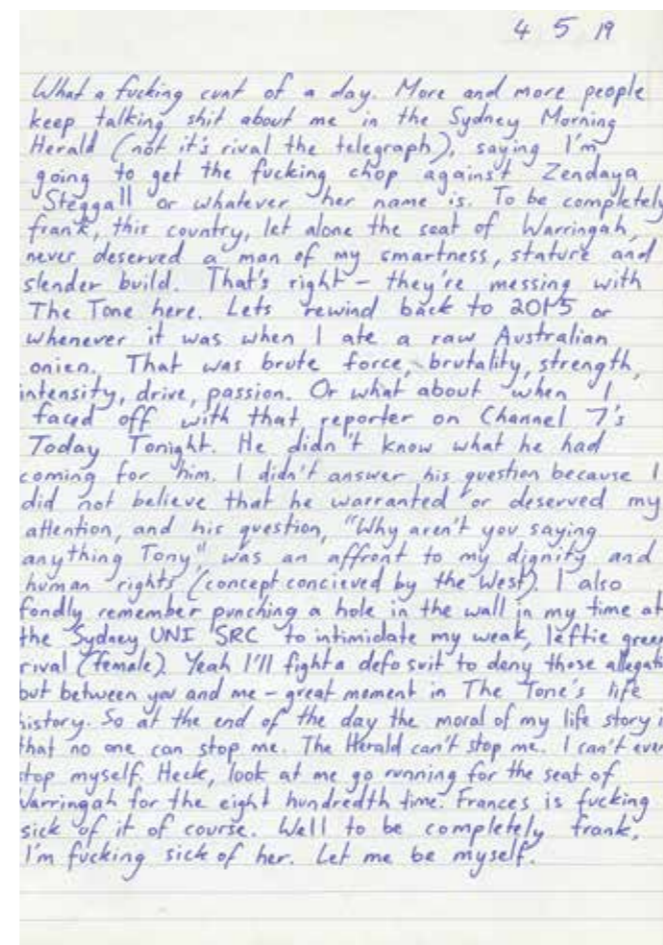 4 5 19
What a fucking cunt of a day. More and more people
keep talking shit about me in the Sydney Morning
Herald (not it's rival the telegraph), saying I'm
going to get the fucking chop against Zendaya
Steggall or whatever her name is. To be completely
frank, this country, let alone the seat of Warringah,
never deserved a man of my smartness, stature and
slender build. That's right – they're messing with
The Tone here. Lets rewind back to 2015 or
whenever it was when I ate a raw Australian
onien. That was brute force, brutality, strength,
intensity, drive, passion. Or what about when I
faced off with that reporter on Channel 7's
Today Tonight. He didn't know what he had
coming for him. I didn't answer his question because I
did not believe that he warranted or deserved my
attention, and his question, "Why aren't you saying
anything Tony", was an affront to my dignity and
human rights (concept concieved by the West). I also
fondly remember punching a hole in the wall in my time at
the Sydney UNI SRC to intimidate my weak, leftie green
rival (female). Yeah I'll fight a defo suit to deny those allegati
but between you and me – great moment in The Tone's life
history. So at the end of the day the moral of my life story i
that no one can stop me. The Herald can't stop me. I can't even
stop myself. Heck, look at me go running for the seat of
Warringah for the eight hundredth time. Frances is fucking
sick of it of course. Well to be completely frank,
I'm fucking sick of her. Let me be myself.